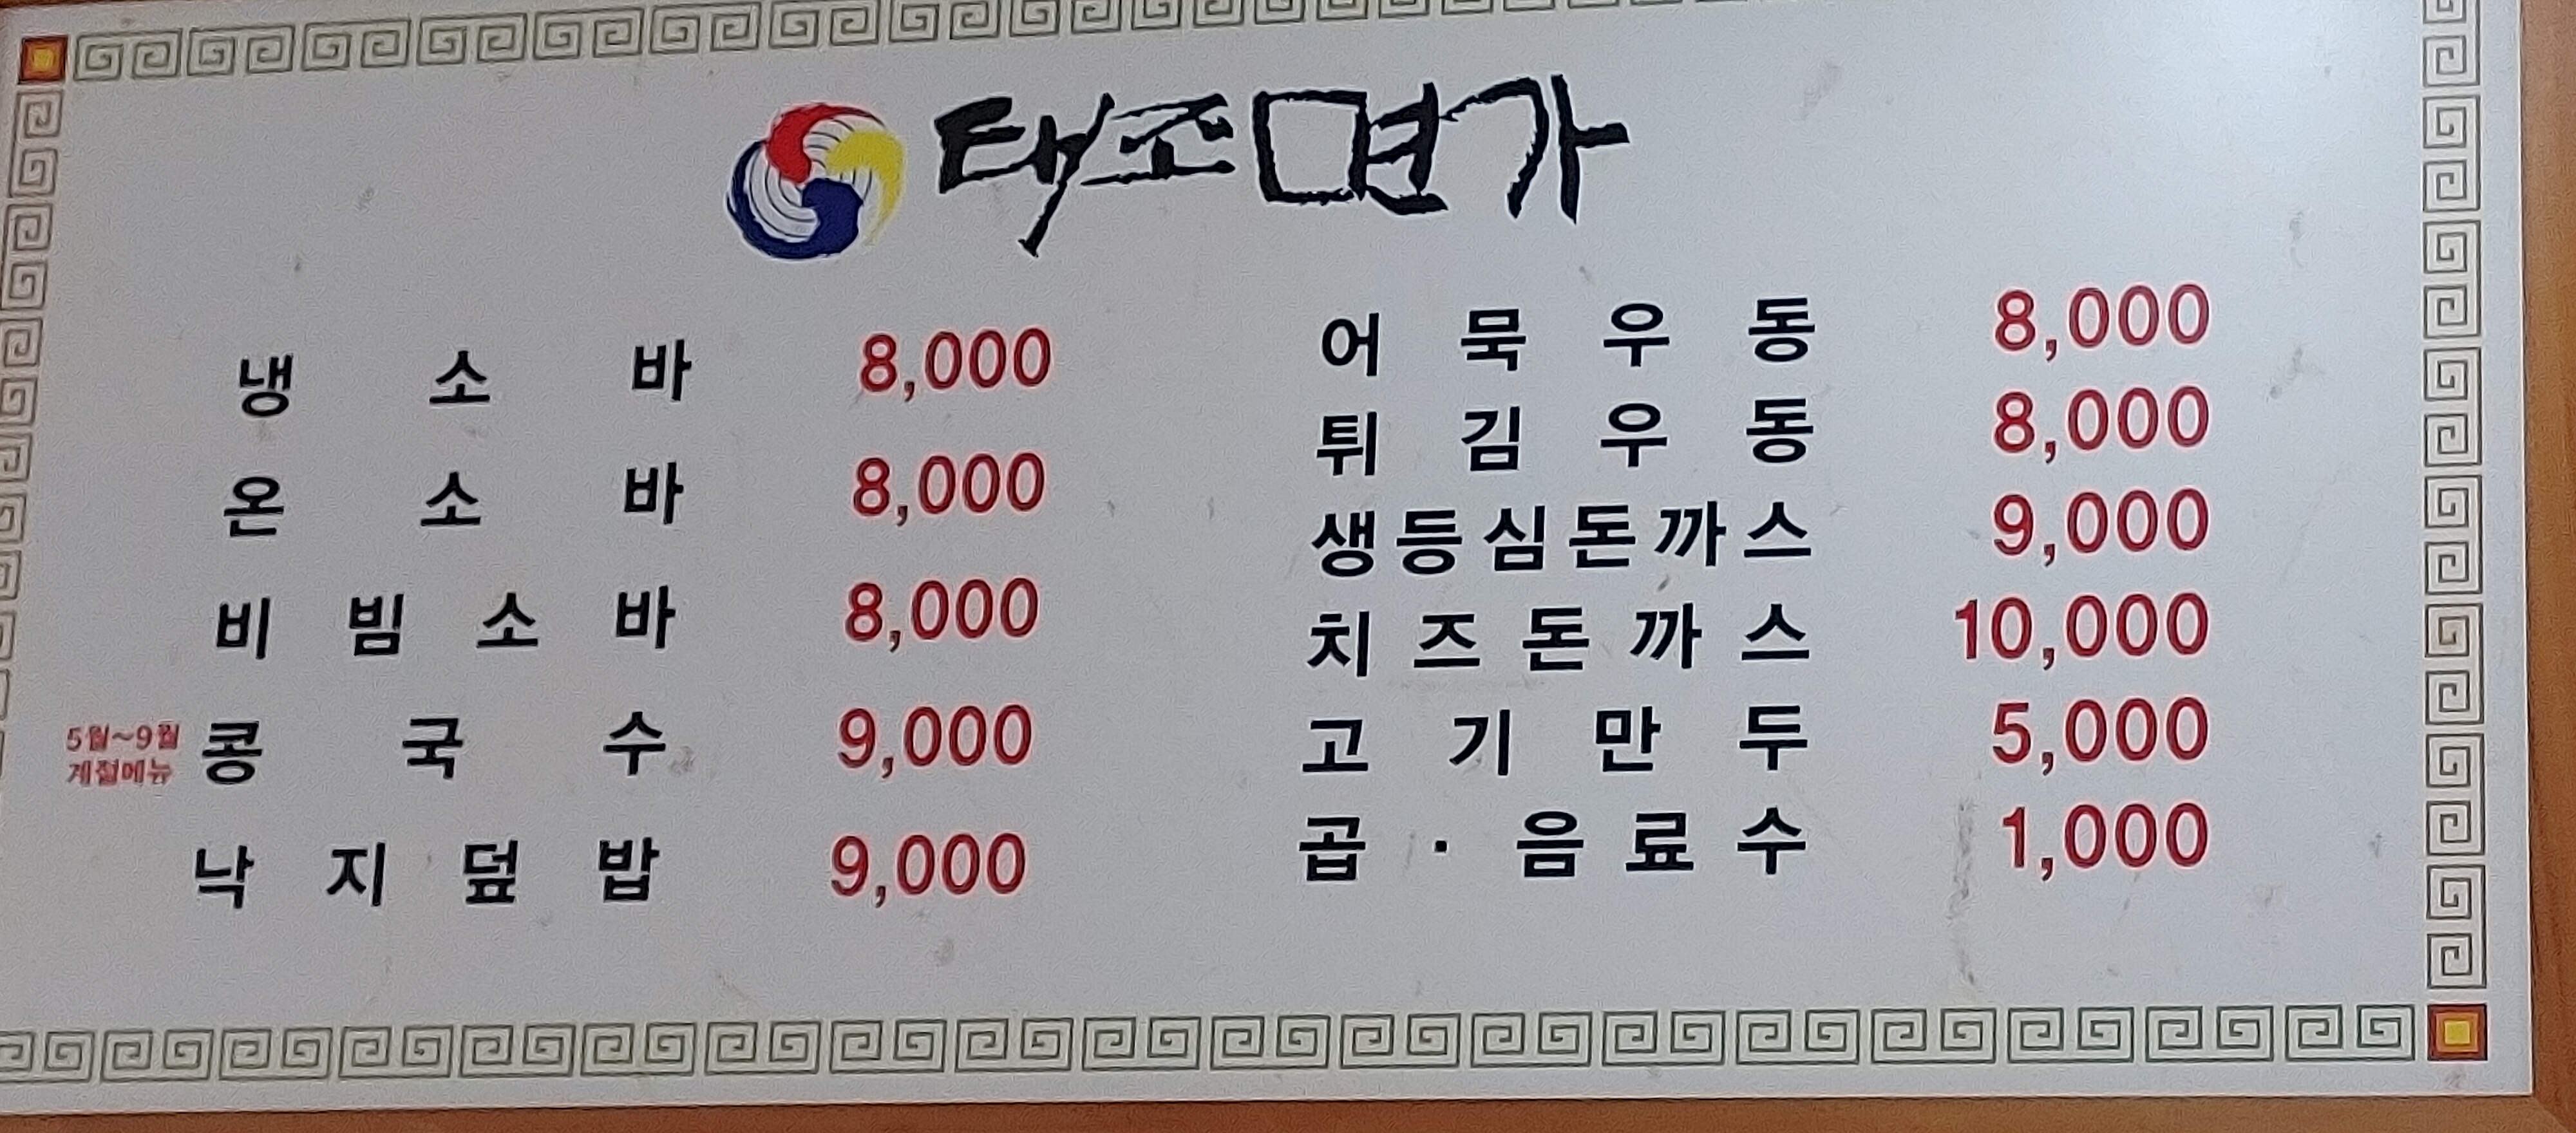 태조면가
냉소바 8,000
온소바 8,000
비빔소바 8,000
5월~9월
계절메뉴
콩국수 9,000
낙지덮밥 9,000
어묵우동 8,000
튀김우동 8,000
생등심돈까스 9,000
치즈돈까스 10,000
고기만두 5,000
곱·음료수 1,000